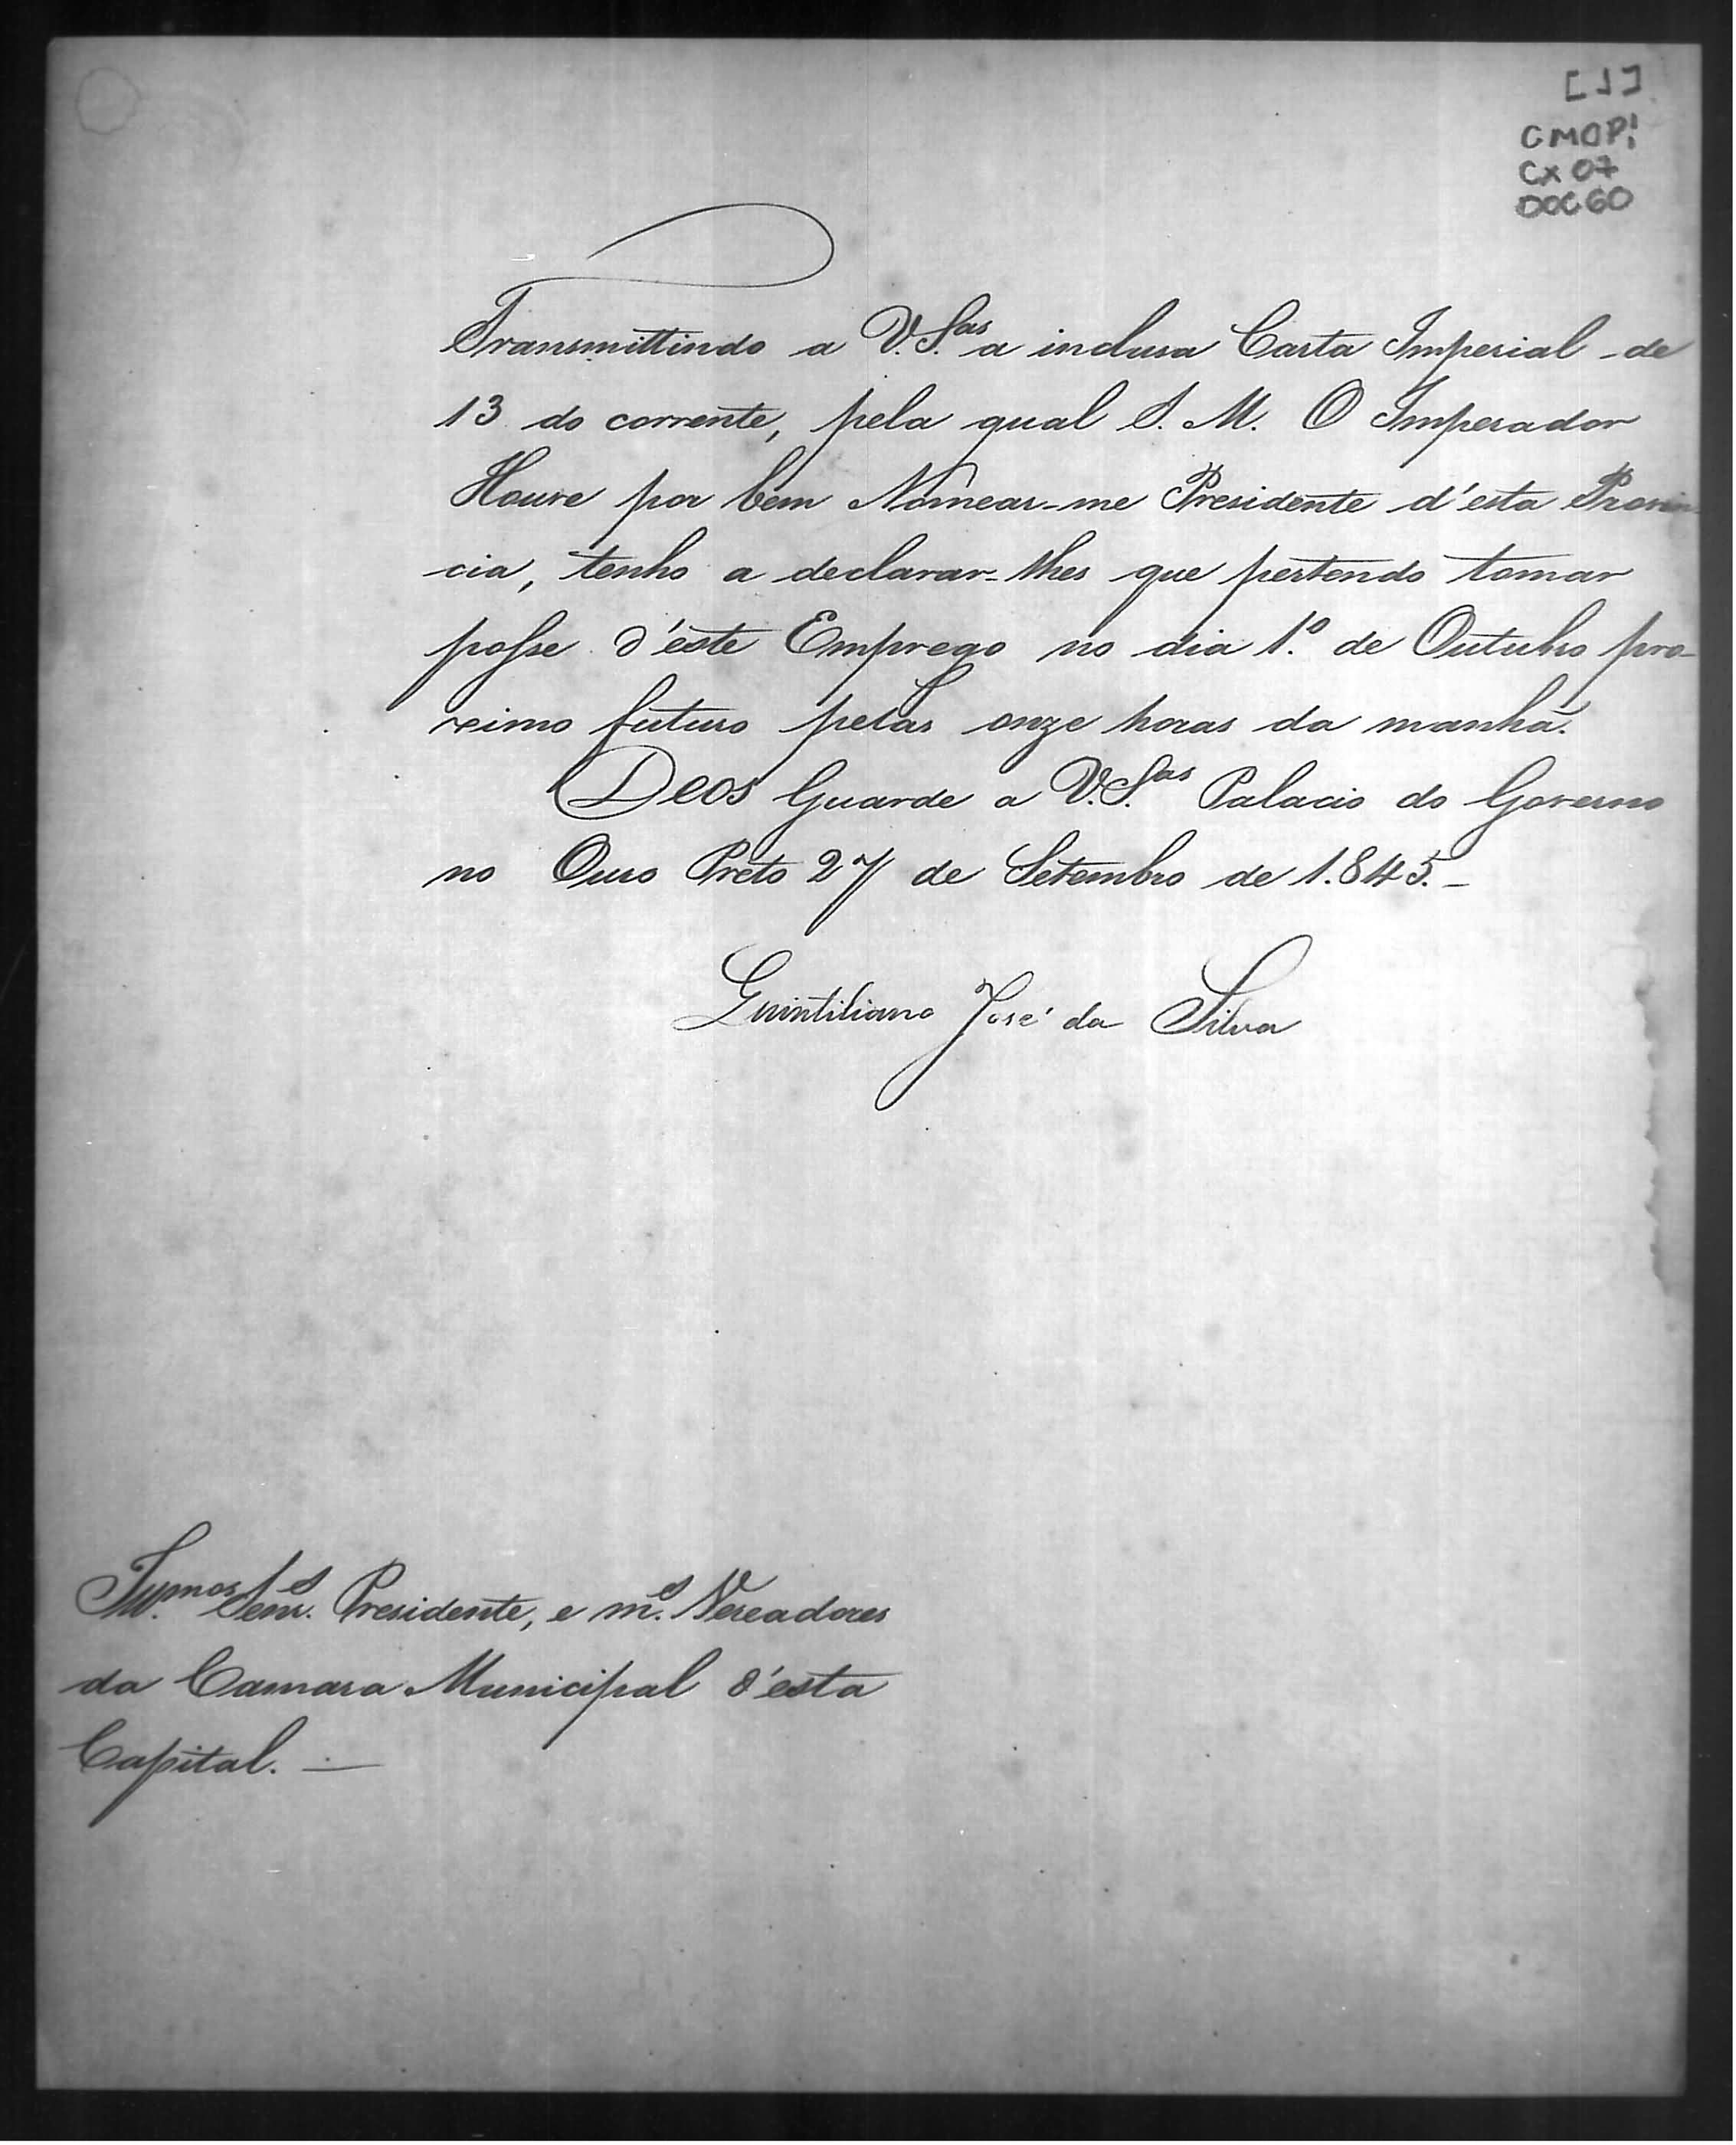 [1]
CMOP!
CX 07
DOC 60
Transmittindo a V. S.as a inclusa Carta Imperial de
13 do corrente, pela qual S. M. O Imperador
Houve por bem Nomear-me Presidente d'esta Provin
cia, tenho a declarar-lhes que pertendo tomar
posse d'éste Emprego no dia 1.º de Outubro pro-
ximo futuro pelas onze horas da manhã.
Deos Guarde a V. S.as Palacio do Governo
no Ouro Preto 27 de Setembro de 1.845.-
Quintiliano José da Silva
Ill.mos Senr.es Presidente, e m.es Vereadores
da Camara Municipal d'esta
Capital. —